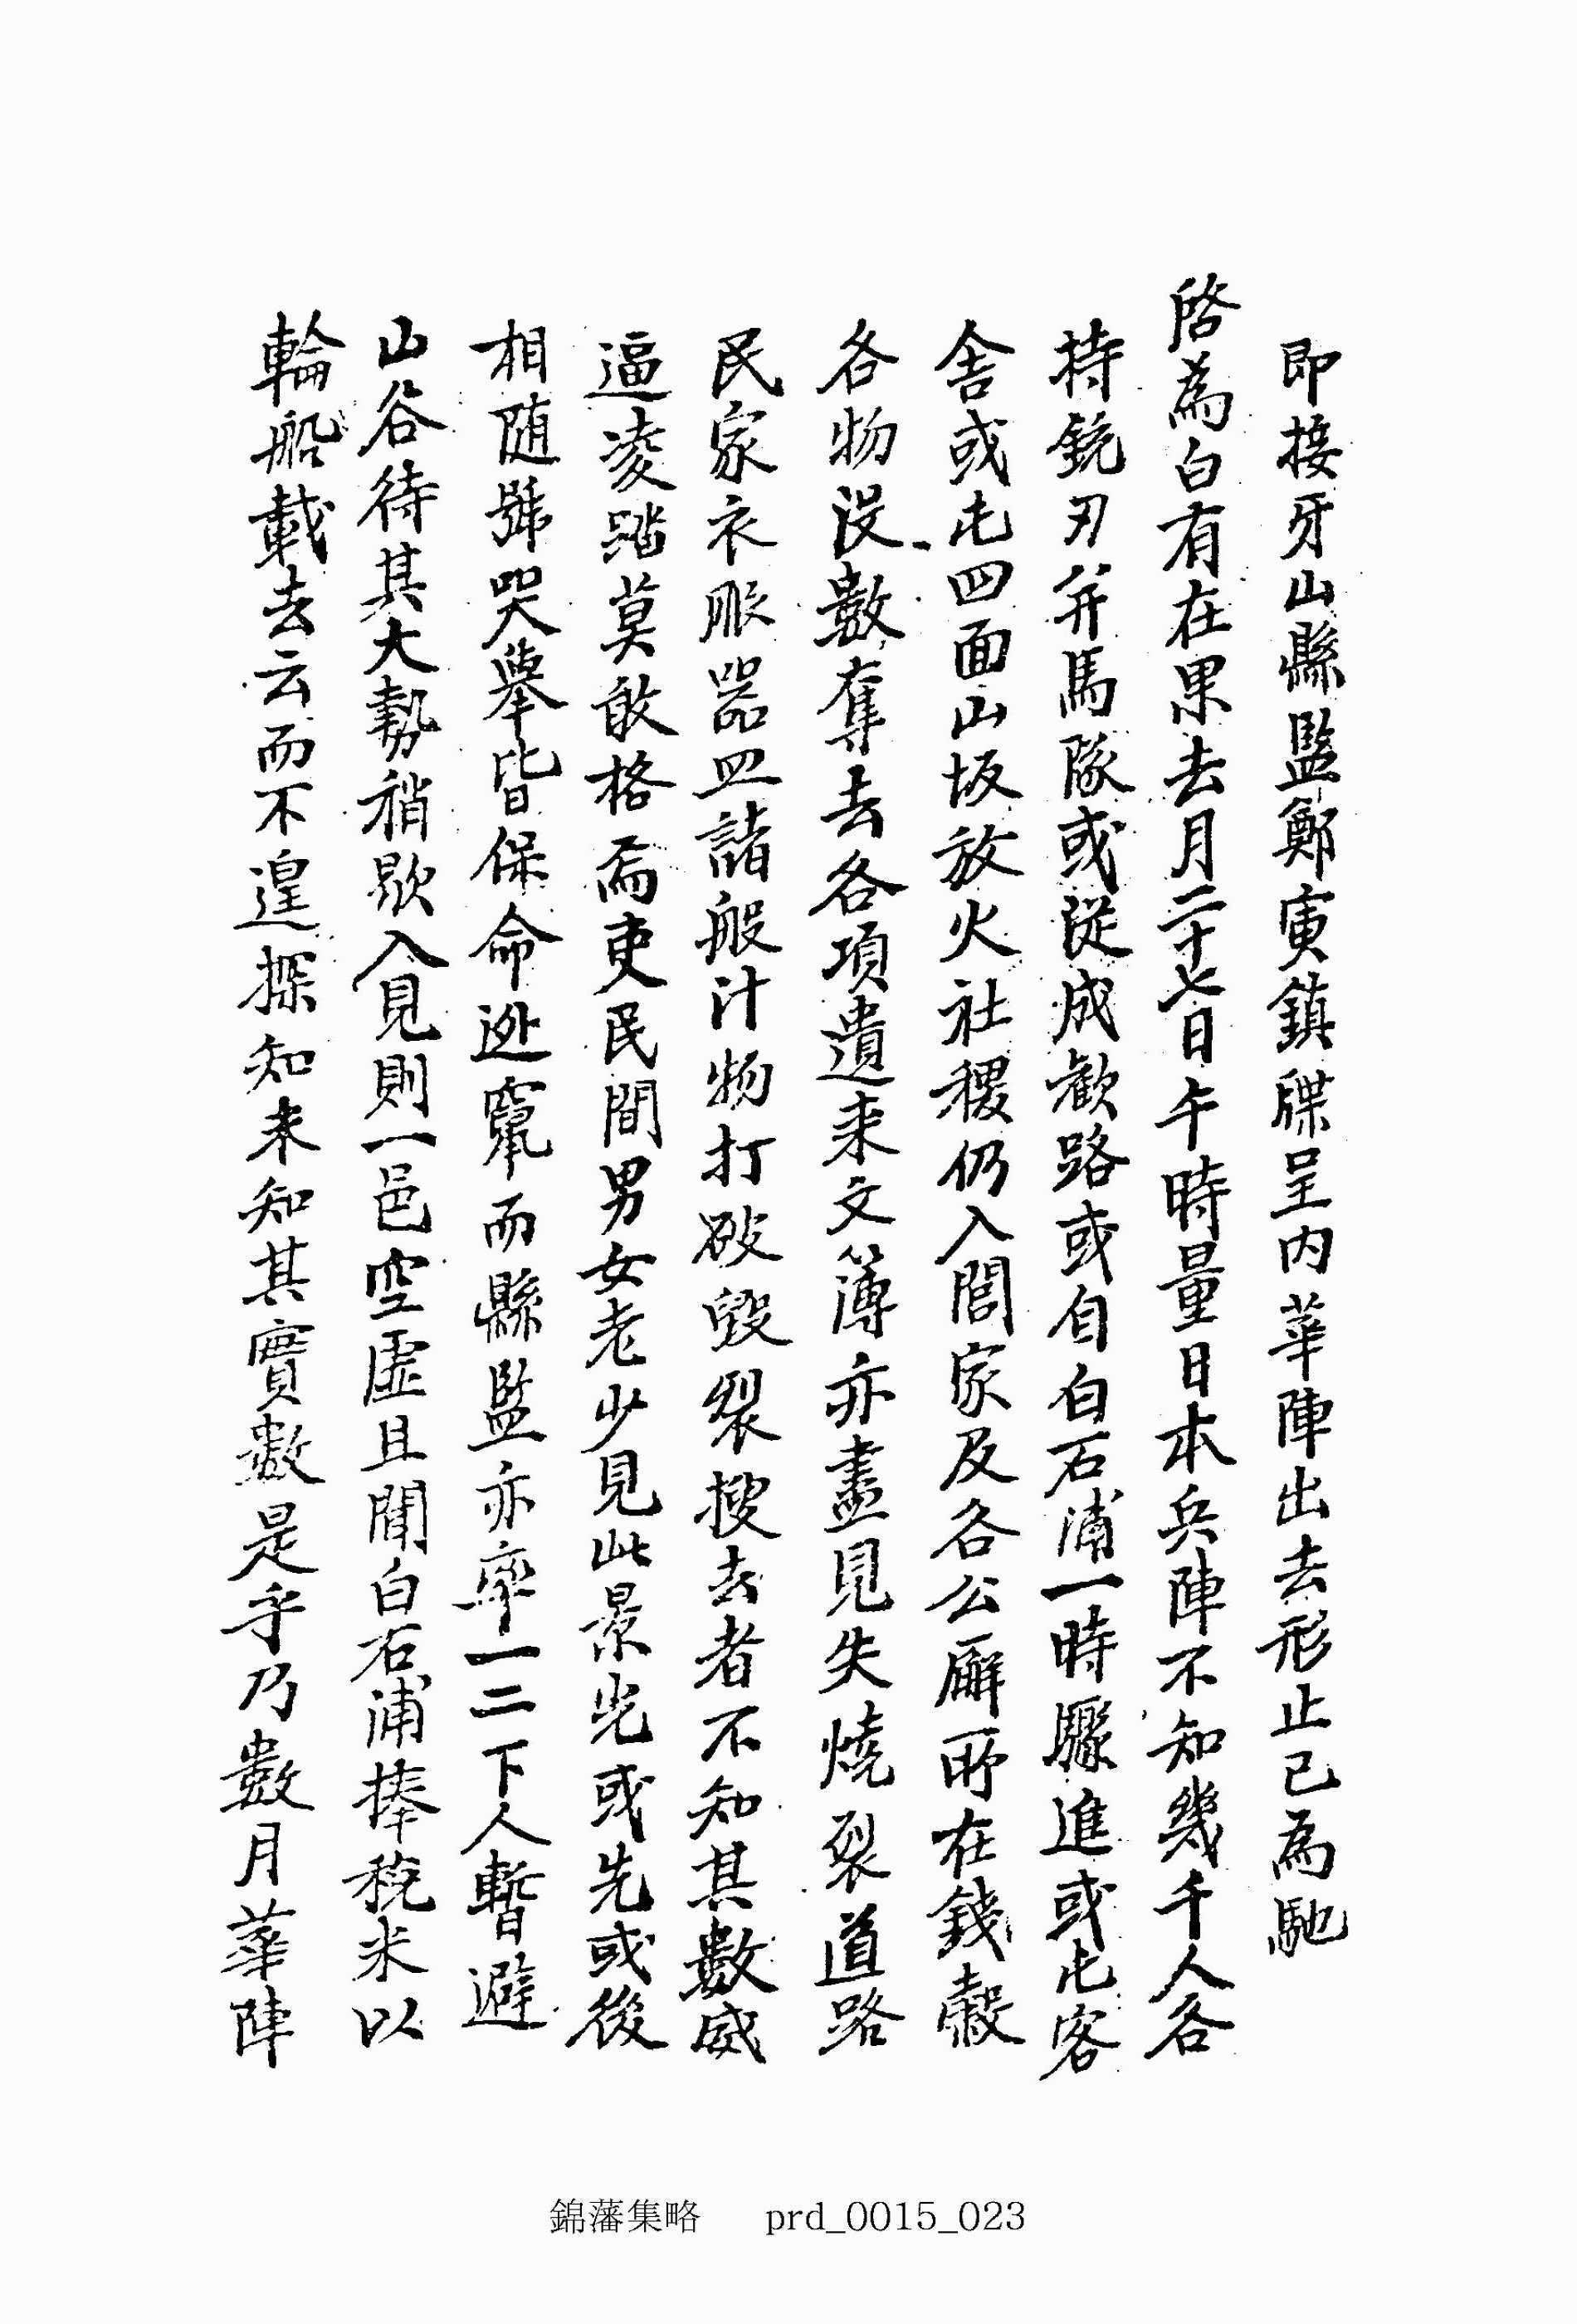 即接牙山縣監鄭寅鎮牒呈內華陣出去形止已為馳
啓為白有在果去月二十七日午時量日本兵陣不知幾千人各
持銃刃並馬隊或從成歡路或自白石浦一時驟進或屯客
舍或屯四面山坂放火社稷仍入閭家及各公廨所在錢穀
各物沒數奪去各項遺來文簿亦盡見失燒裂道路
民家衣服器皿諸般汁物打破毀裂搜去者不知其數威
逼凌踏莫敢格焉吏民間男女老少見此景光或先或後
相随號哭擧皆保命逃竄而縣監亦率一二下人暫避
山谷待其大勢稍歇入見則一邑空虛且聞白石浦捧稅米以
輪船載去云而不遑探知未知其實數是乎乃數月華陣
錦藩集略 prd_0015_023